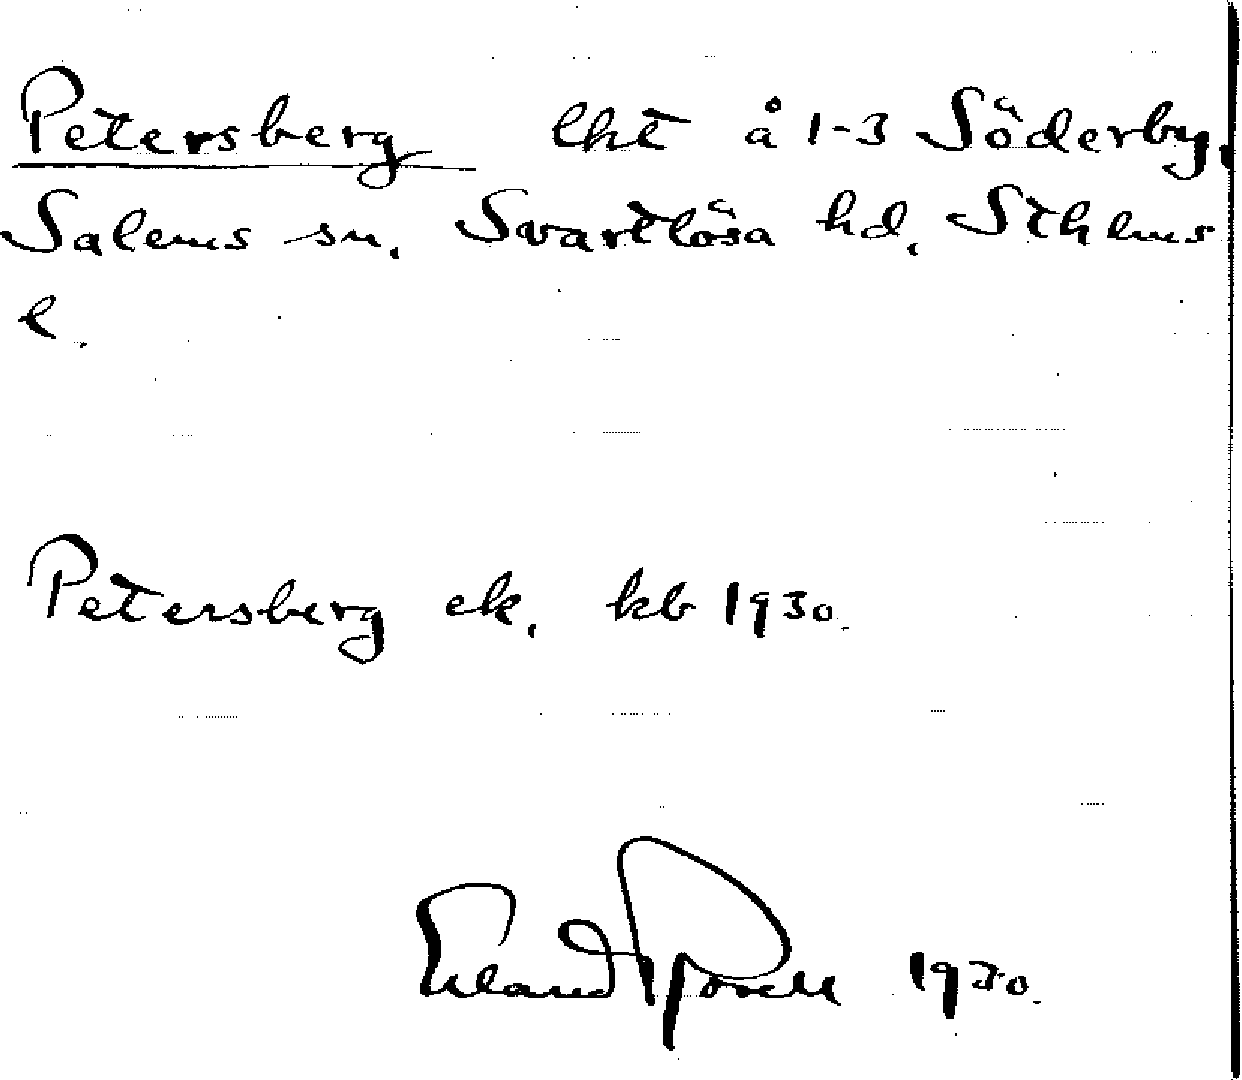 Petersberg lht å 1-3 Söderby,
Salems sn. Svartlösa hd, Sthlms
l.
Petersberg ek. kb 1930.
Erland Rosell 1930.